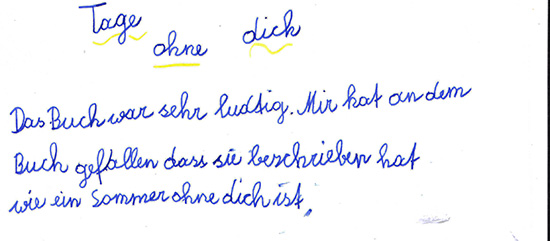 Tage
ohne dich
Das Buch war sehr ludtig. Mir hat an dem
Buch gefallen dass sie beschrieben hat
wie ein Sommer ohne dich ist.